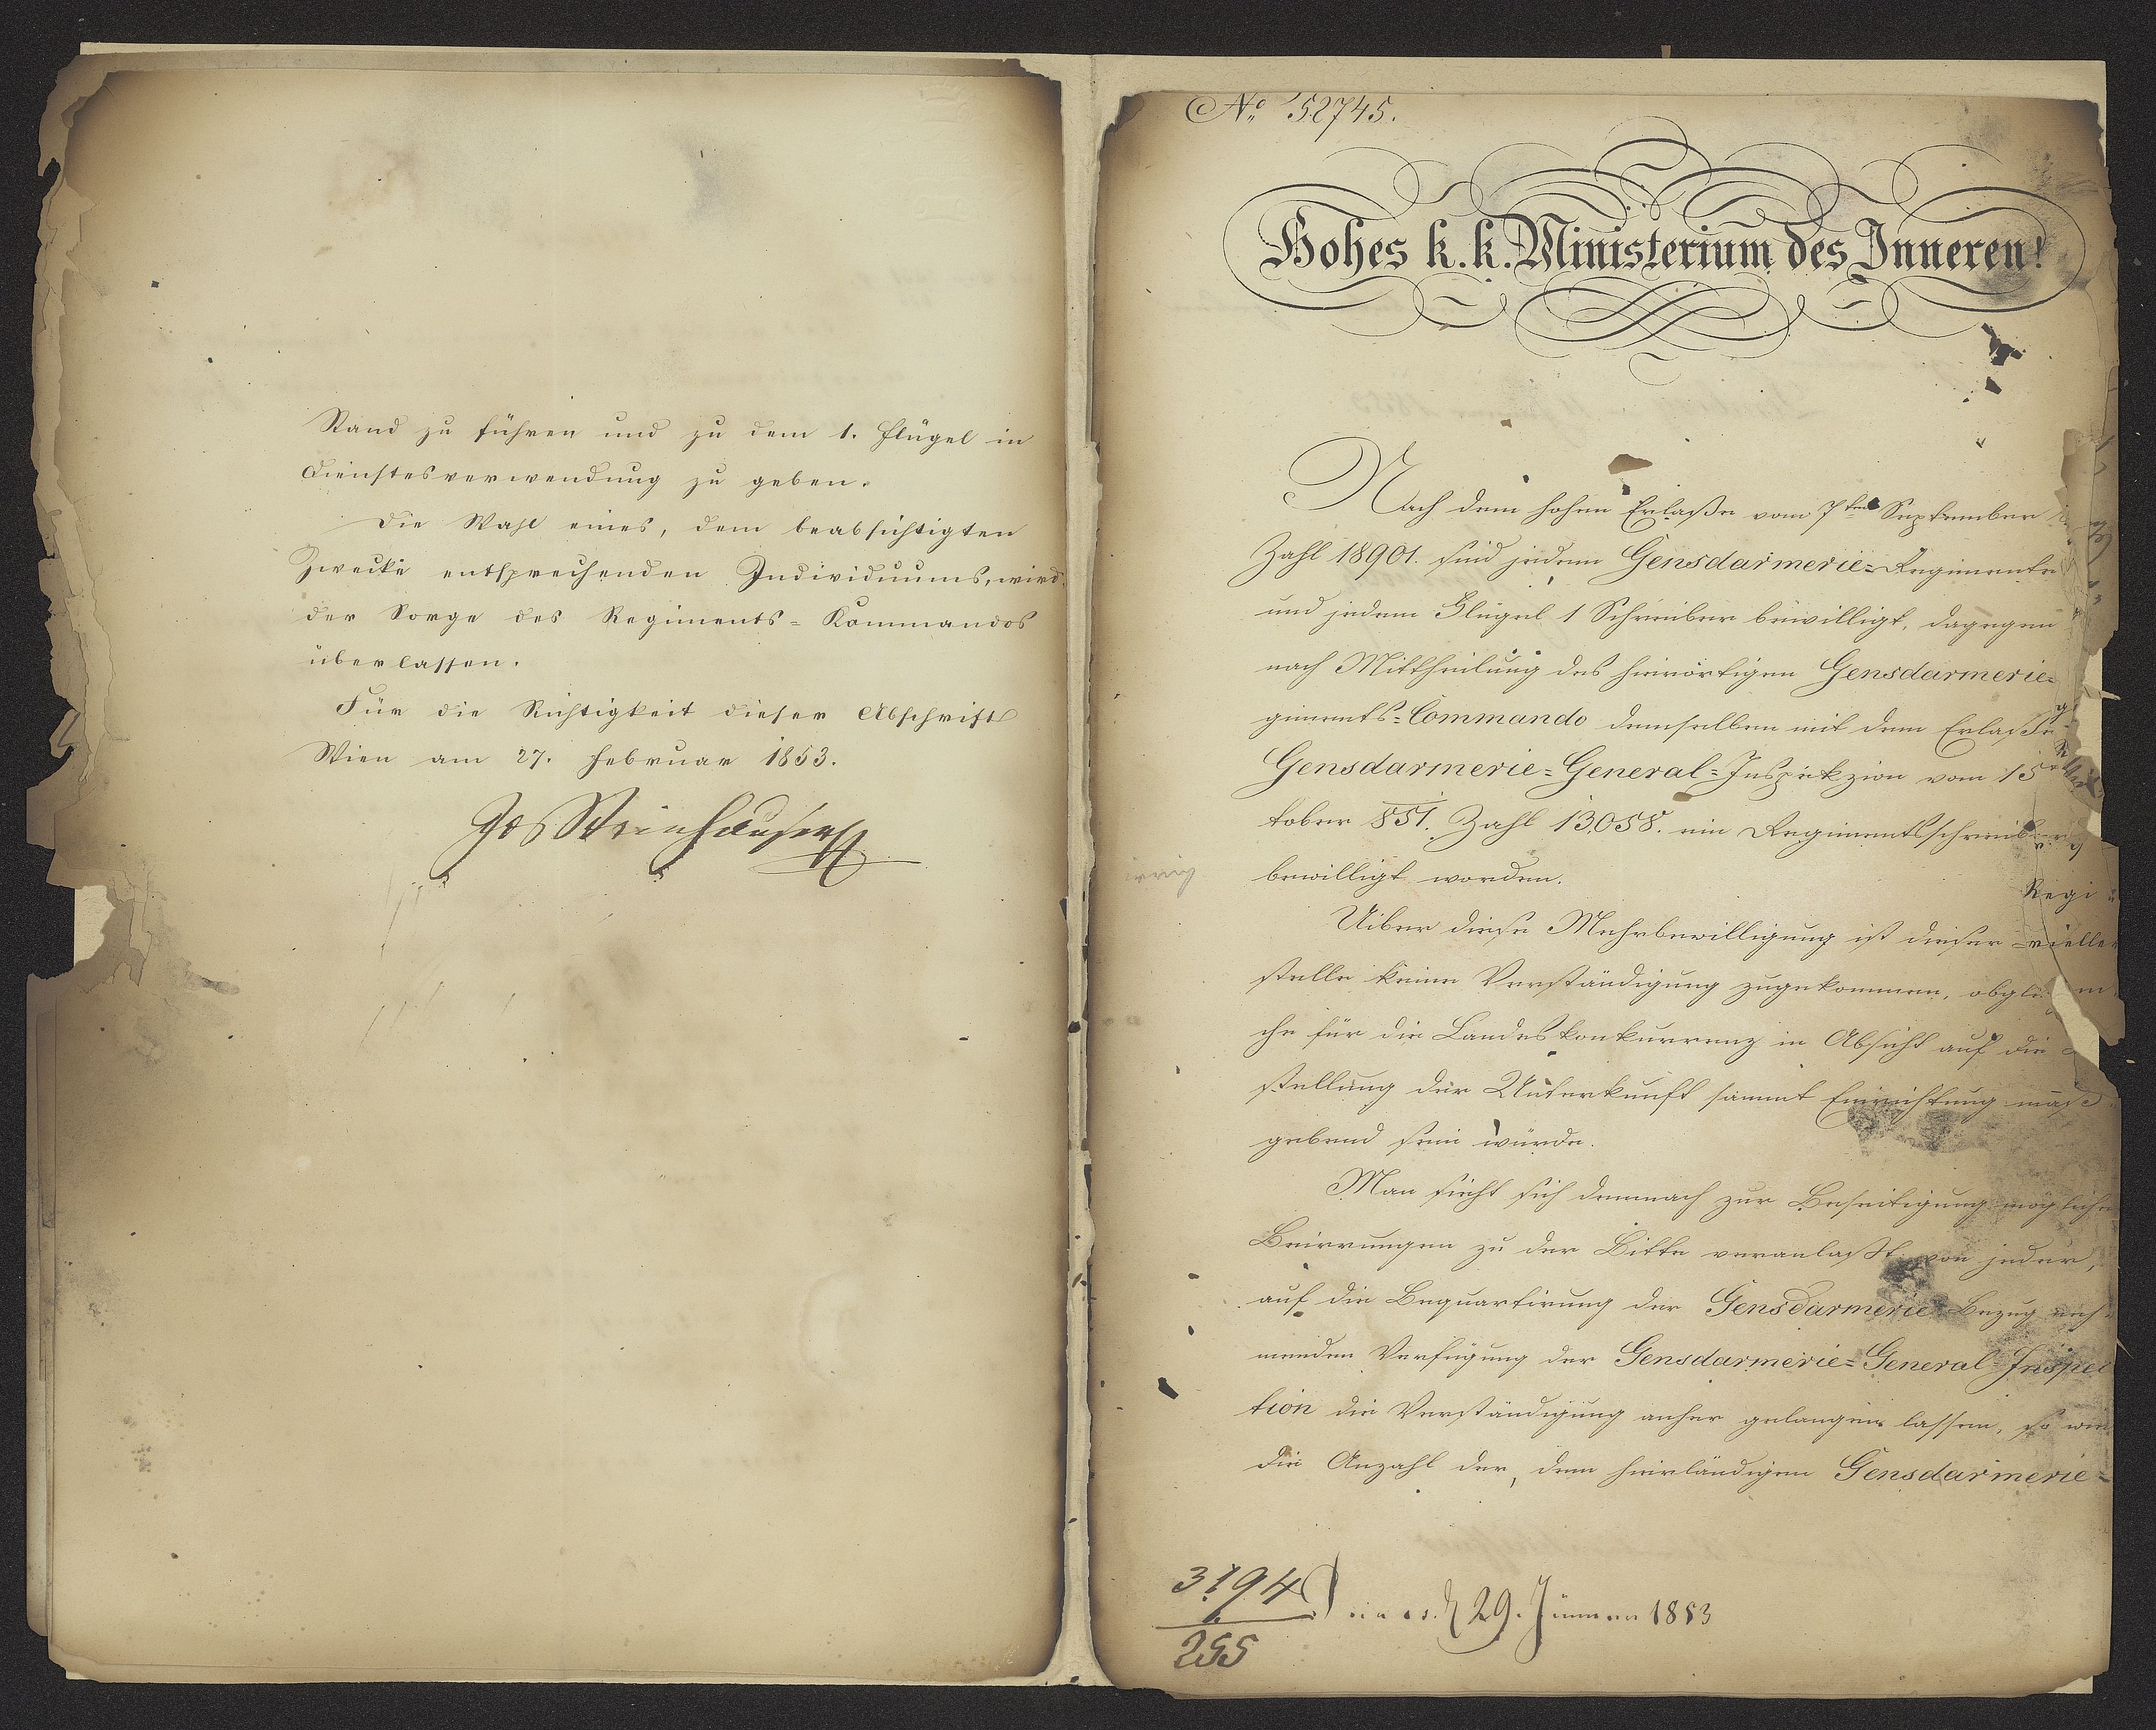 Stand zu führen und zu dem 1. Flügel in
Dienstesverwendung zu geben.
Die Wahl eines, dem beabsichtigten
Zwecke entsprechenden Individuums, wird
der Sorge des Regiments-Kommandos
überlassen.
Für die Richtigkeit dieser Abschrift
Wien am 27. Februar 1853.
Jos Weinhauser
No 52745.
Hohes k. k. Ministerium des Inneren!
Nach dem hohen Erlaße vom 7ten September
Zahl 18901. sind jedem Gensdarmerie-Regimente
und jedem Flügel 1 Schreiber bewilligt, dagegen
nach Mittheilung des hierortigen Gensdarmerie-
giments-Commando demselben mit dem Erlaße
Gensdarmerie-General-Inspekzion vom 15
tober 851. Zahl 13,058. ein Regimentsschreiber
bewilligt worden.
irrig
Regi
Uiber diese Mehrbewilligung ist dieser
stelle keine Verständigung zugekommen, obglei
che für die Landeskonkurrenz in Absicht auf die
stellung der Unterkunft sammt Einrichtung maß
gebend sein würde.
Man sieht sich demnach zur Beseitigung mögliche
Beirrungen zu der Bitte veranlaßt von jeder,
auf die Bequartirung der Gensdarmerie Bezug neh-
menden Verfügung der Gensdarmerie-General-Inspec
tion die Verständigung anher gelangen lassen, so wie
die Anzahl der, dem hierländigen Gensdarmerie-
3194
255
29. Jänner 1853